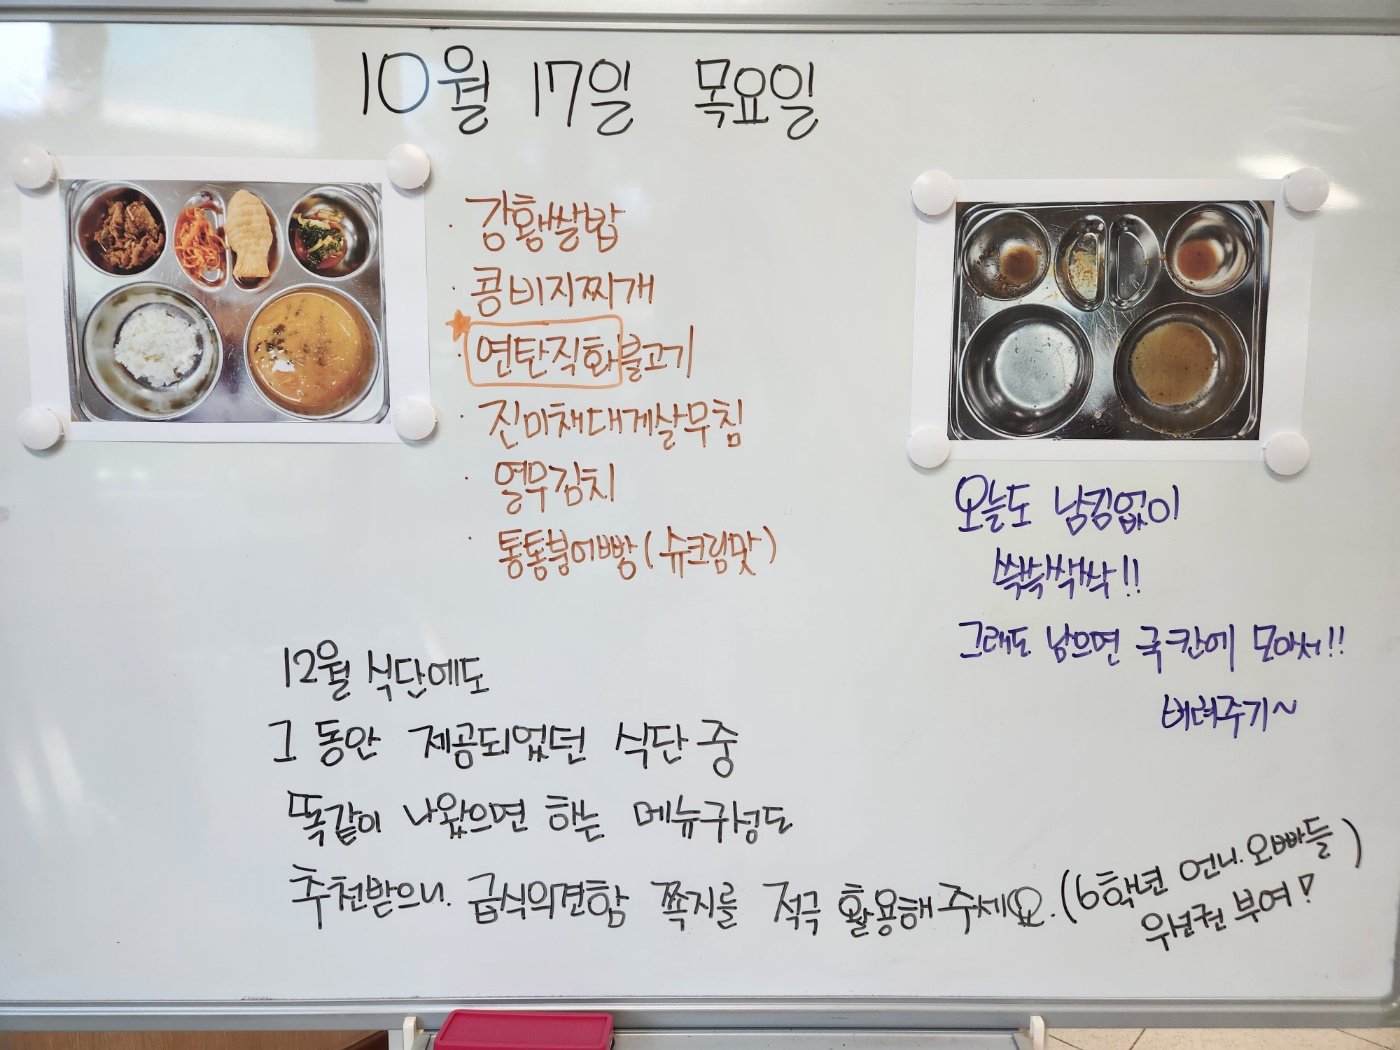 10월 17일 목요일
· 강황쌀밥
· 콩비지찌개
· 연탄직화불고기
· 진미채대게살무침
· 열무김치
· 통통붕어빵(슈크림맛)
오늘도 남김없이
쓱쓱싹싹!!
그래도 남으면 국칸에 모아서!!
버려주기~
12월 식단에도
그 동안 제공되었던 식단 중
똑같이 나왔으면 하는 메뉴구성도
추천받으니. 급식의견함 쪽지를 적극 활용해주세요. (6학년 언니.오빠들)
우선권 부여!